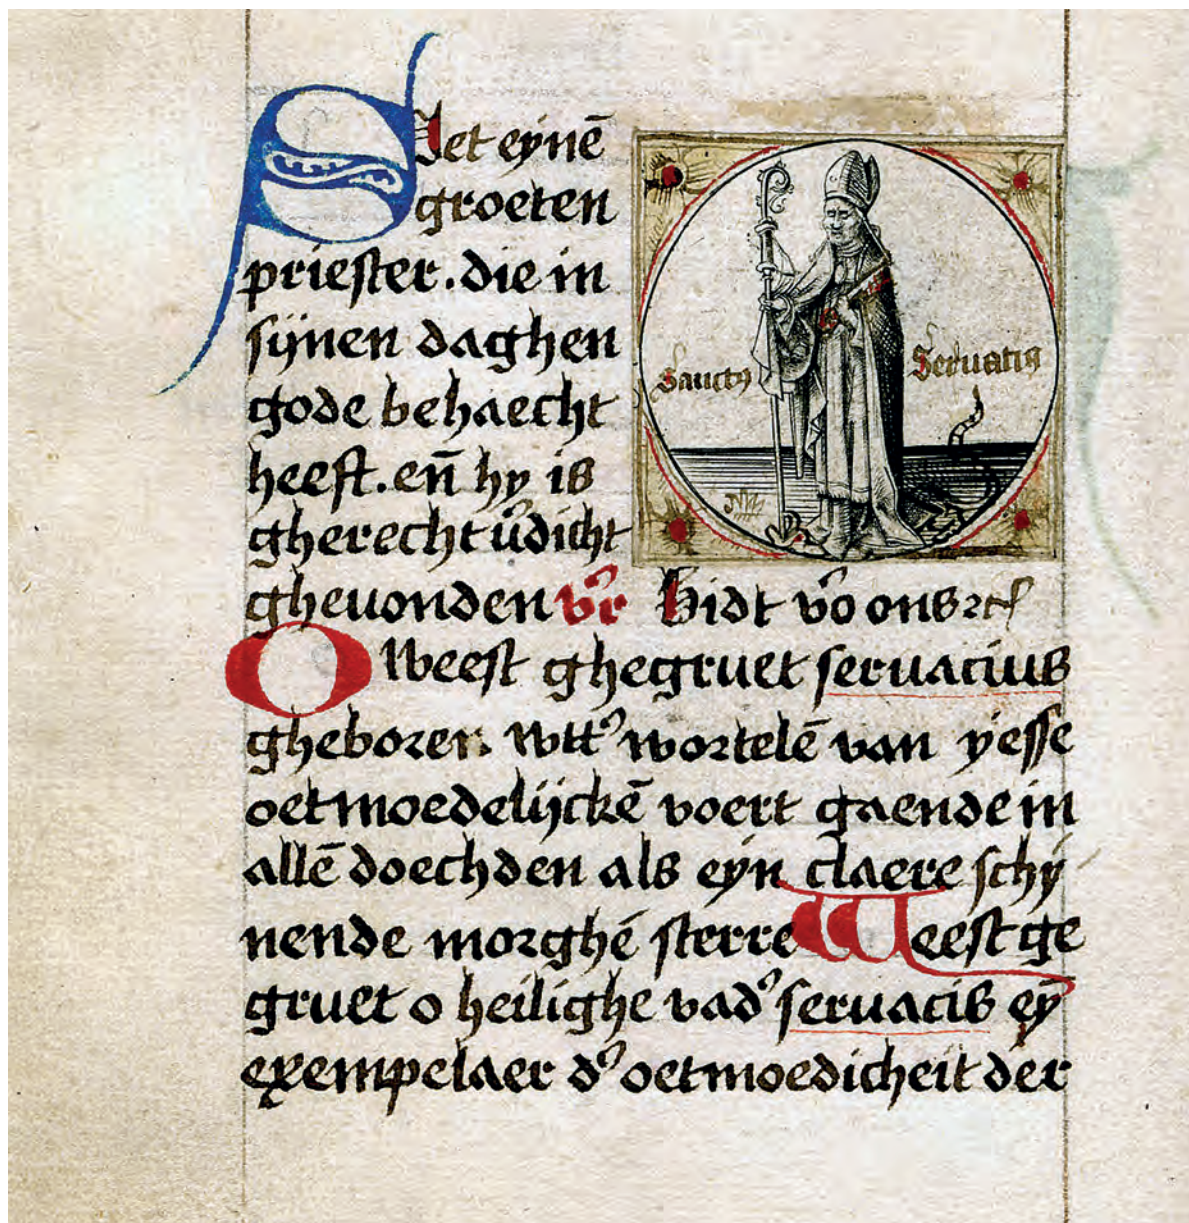 Siet eynē
groeten
priester. die in
sijnen daghen
gode behaecht
heeft. en̄ hy is
gherecht v̾dicht
gheuonden v̾r Bidt v̾o ons ⁊cͭ
Sanctꝰ Seruatiꝰ
O Weest ghegruet seruacius
gheboren wtt̾ wortelē van yesse
oetmoedelijckē voert gaende in
allē doechden als eyn claere schy
nende morghē sterre Weest ge
gruet o heilighe vad̾ seruacis eȳ
exempelaer d̾ oetmoedicheit der